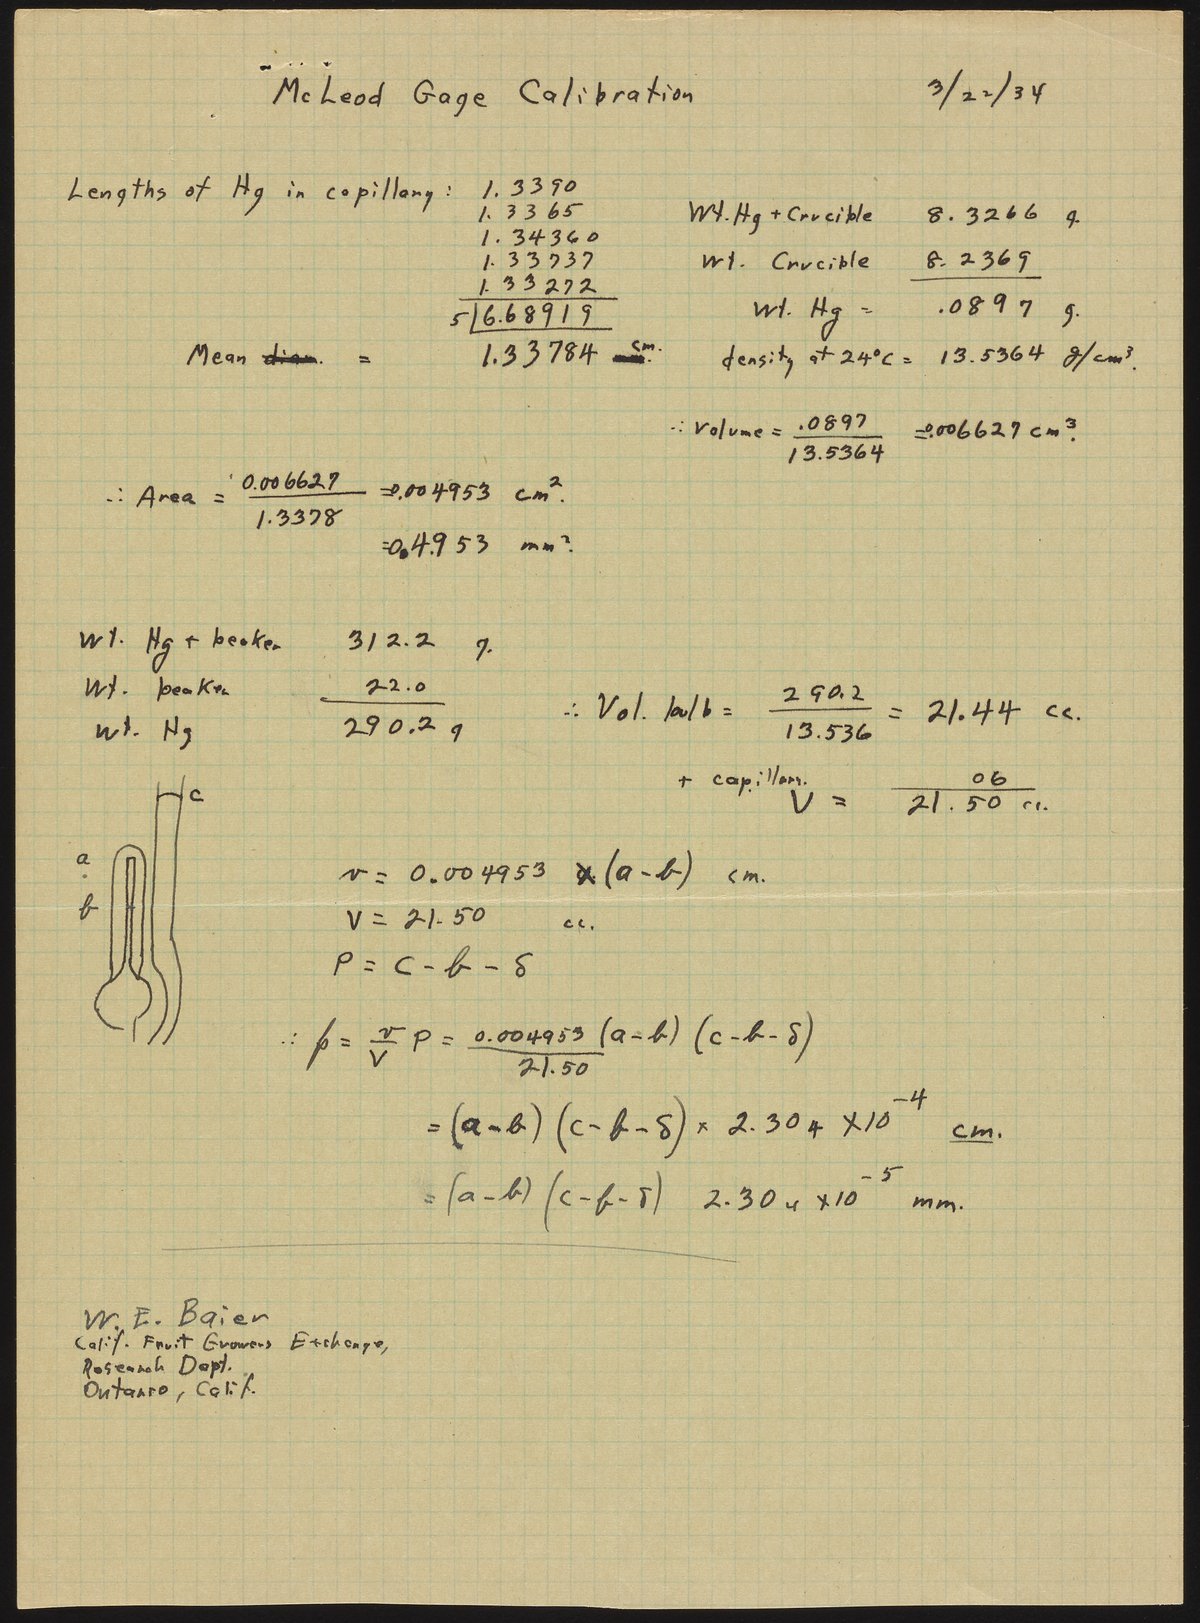 McLeod Gage Calibration 3/22/34
Lengths of Hg in capillary: 1.3390
1.3365
1.34360
1.33737
1.33272
5 6.68919
Mean diam. = 1.33784 cm.
Wt. Hg + Crucible 8.3266 g.
Wt. Crucible 8.2369
Wt. Hg = .0897 g.
density at 24°C = 13.5364 g/cm³.
∴ Volume = .0897 / 13.5364 = 0.006627 cm³.
∴ Area = 0.006627 / 1.3378 = 0.004953 cm².
= 0.4953 mm².
Wt. Hg + beaker 312.2 g.
Wt. beaker 22.0
Wt. Hg 290.2 g
∴ Vol. bulb = 290.2 / 13.536 = 21.44 cc.
+ capillary. 06
V = 21.50 cc.
c
a
b
v = 0.004953 × (a-b) cm.
V = 21.50 cc.
P = c - b - δ
∴ p = v/V P = 0.004953 / 21.50 (a-b) (c-b-δ)
= (a-b) (c-b-δ) × 2.304 × 10⁻⁴ cm.
= (a-b) (c-b-δ) 2.304 × 10⁻⁵ mm.
W. E. Baier
Calif. Fruit Growers Exchange,
Research Dept.
Ontario, Calif.